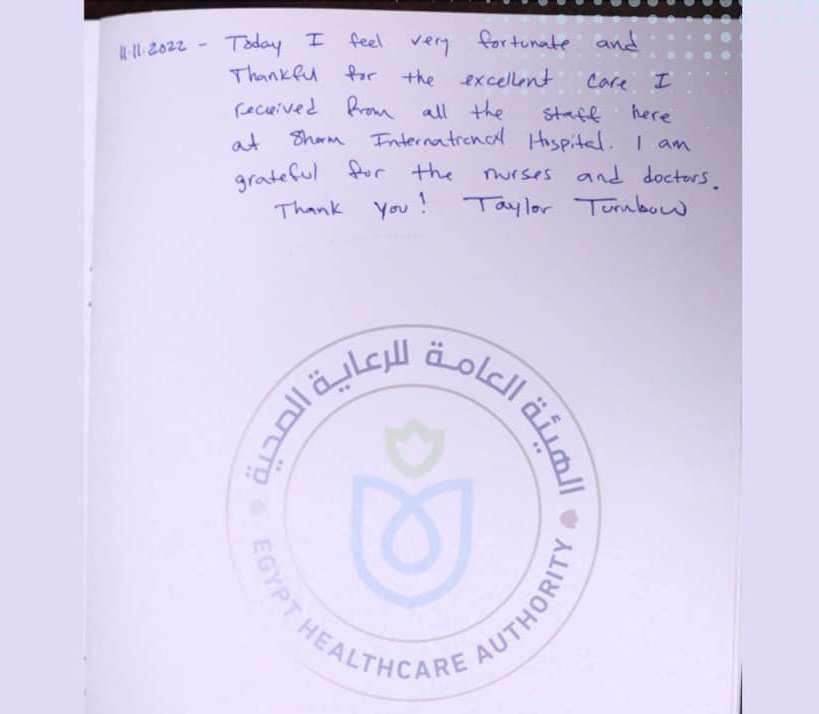 11.11.2022 - Today I feel very fortunate and
Thankful for the excellent care I
received from all the staff here
at Sharm International Hospital. I am
grateful for the nurses and doctors.
Thank you! Taylor Turnbow
الهيئة العامة للرعاية الصحية
EGYPT HEALTHCARE AUTHORITY